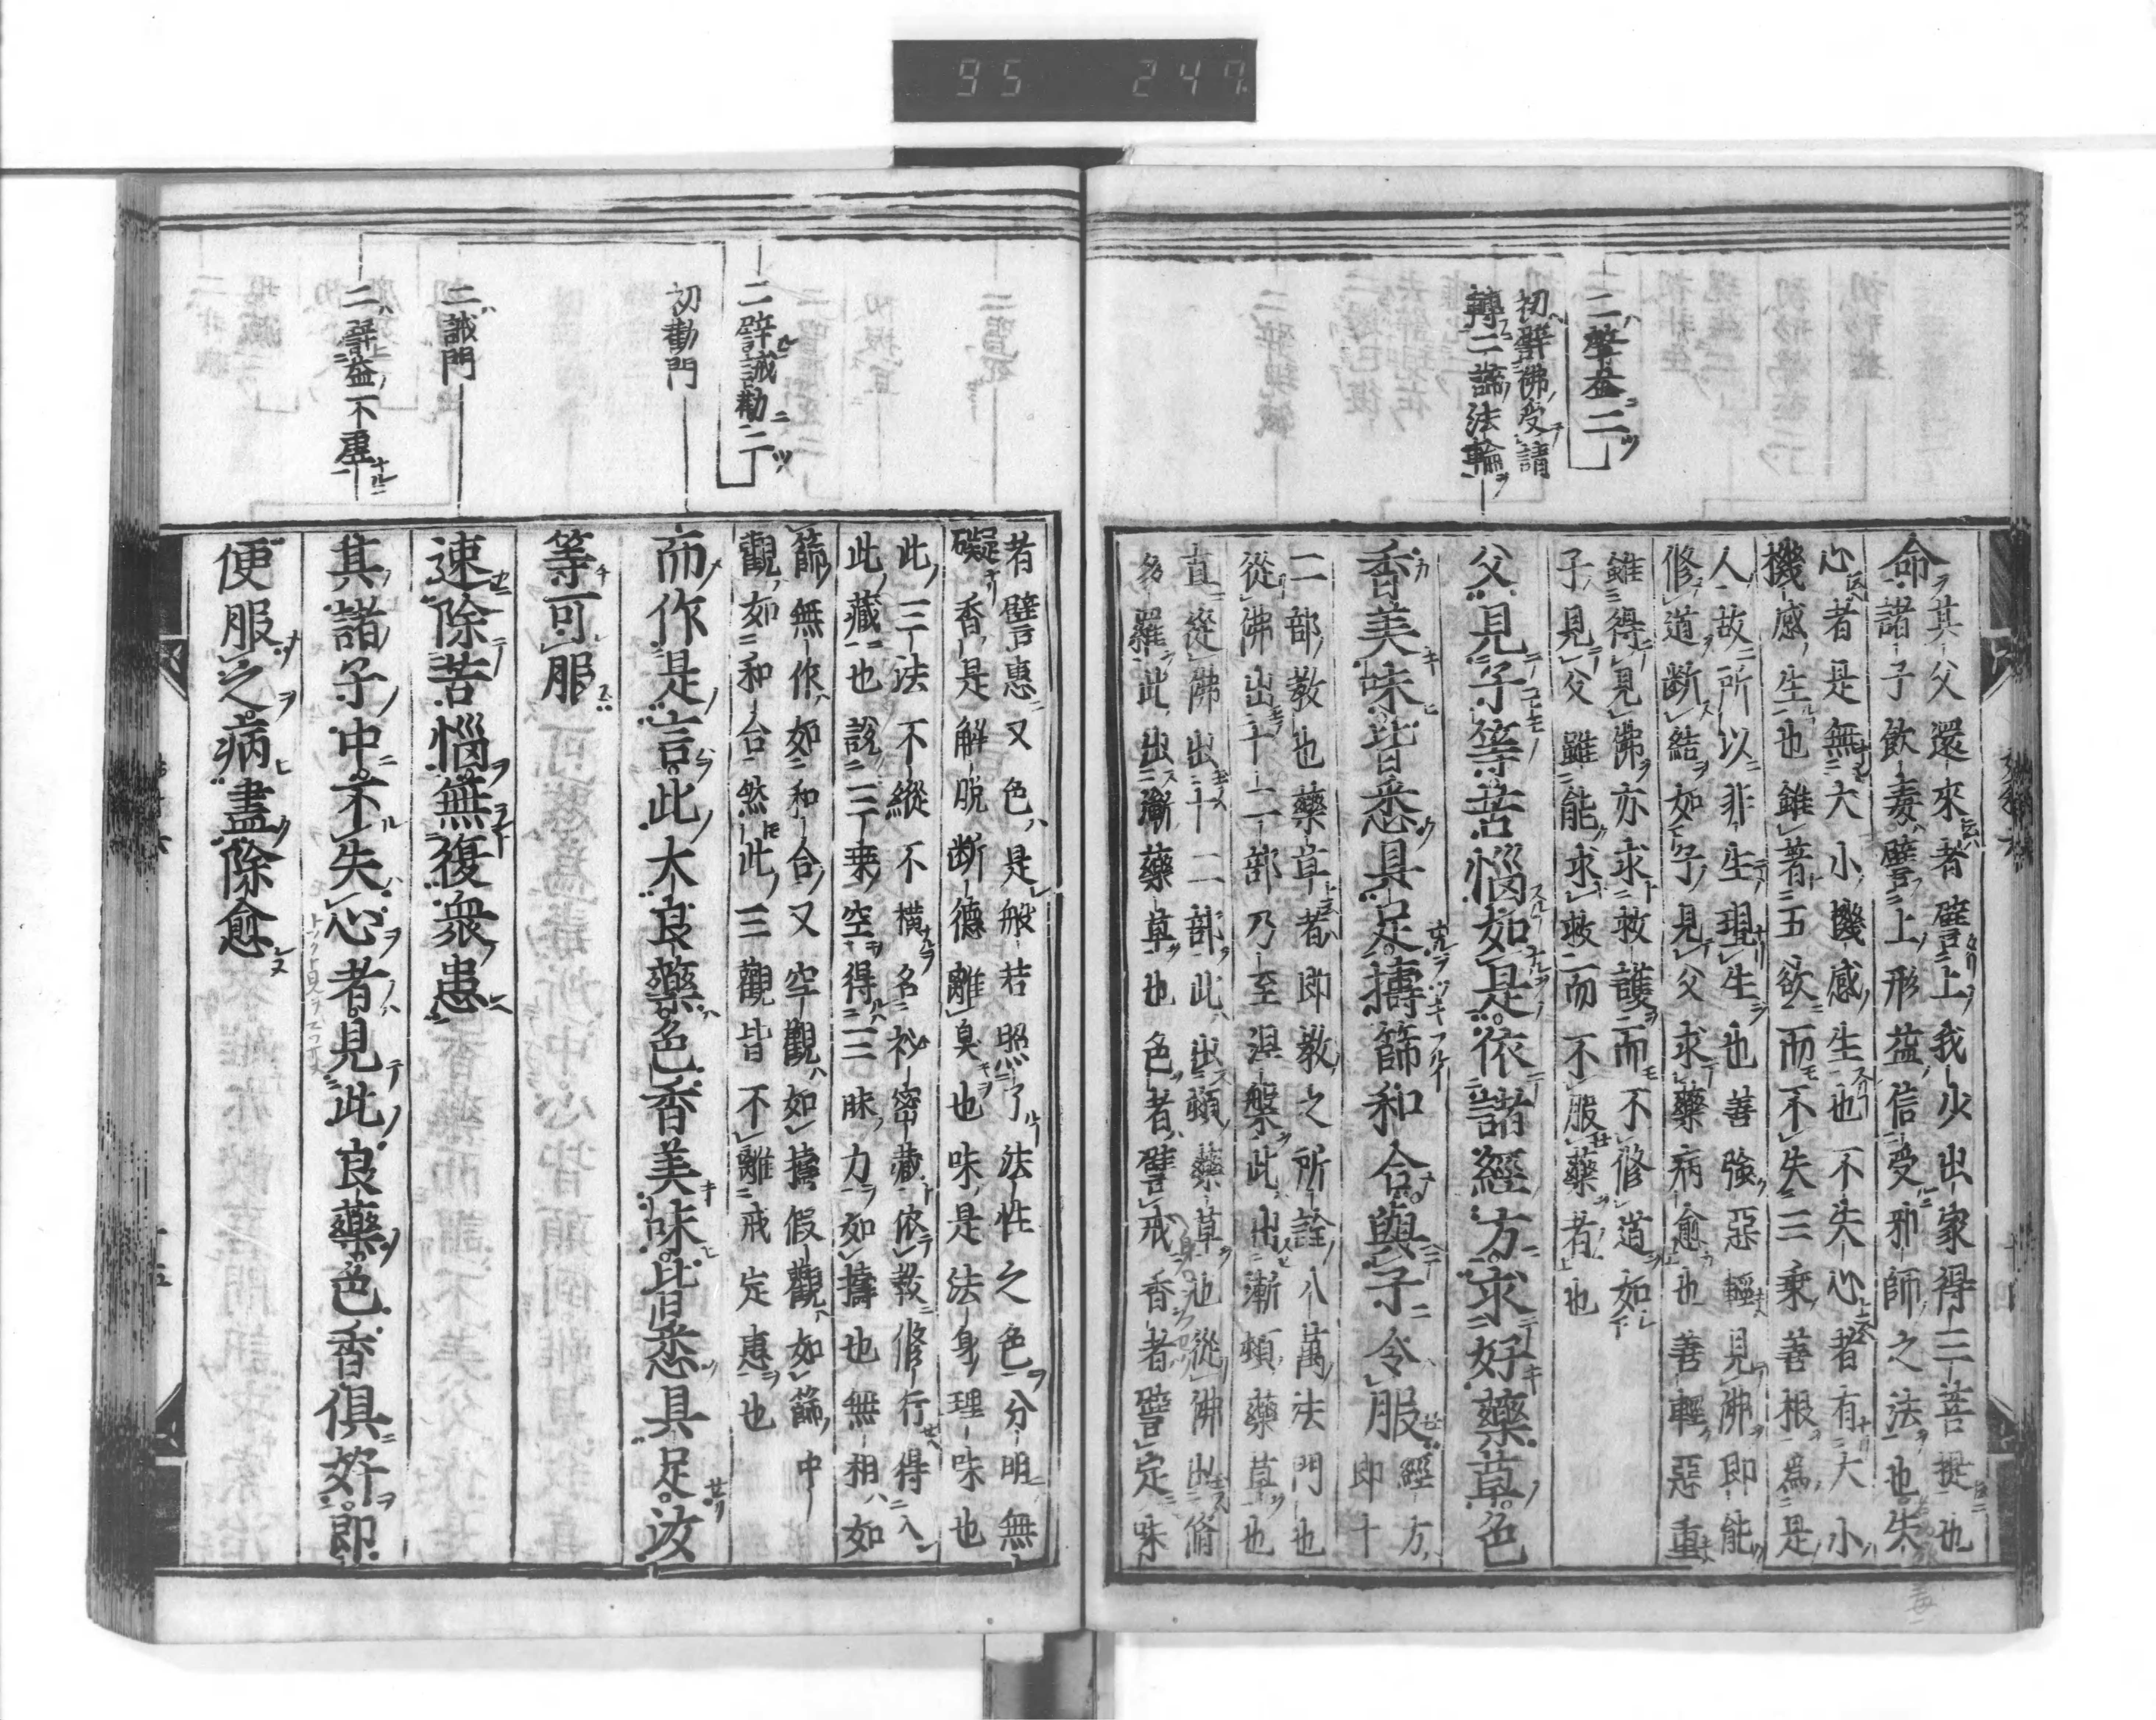 95 247
二譬益二
初譬佛受請
轉二諦法輪
命其父還來者譬上我少出家得三菩提也
諸子飲毒譬上形益信受邪師之法也失
心者是無大小機感生也不失心者有大小
機感生也雖著五欲而不失三乘善根爲是
人故所以非生現生也善強惡輕見佛即能
修道断結如子見父求藥病愈也善輕惡重
雖得見佛亦求救護而不修道如
子見父雖能求救而不服藥者也
父見子等苦惱如是依諸經方求好藥草色
香美味皆悉具足擣篩和合與子令服經方即十
二部教也藥草者即教之所詮八萬法門也
從佛出十二部乃至涅槃此出漸頓藥草也
直從佛出十二部此出頓藥草也從佛出脩
多羅此出漸藥草也色者譬戒香者譬定味
者譬惠又色是般若照了法性之色分明無
礙香是解脱断德離臭也味是法身理味也
此三法不縱不横名祕密藏依教修行得入
此藏也說三乗空得三三昧力如擣也無相如
篩無作如和合又空觀如擣假觀如篩中
觀如和合然此三觀皆不離戒定惠也
二譬誡勸二
初勸門
而作是言此大良藥色香美味皆悉具足汝
等可服
二誡門
速除苦惱無復衆患
二譬益不虛
其諸子中不失心者見此良藥色香俱好即
便服之病盡除愈